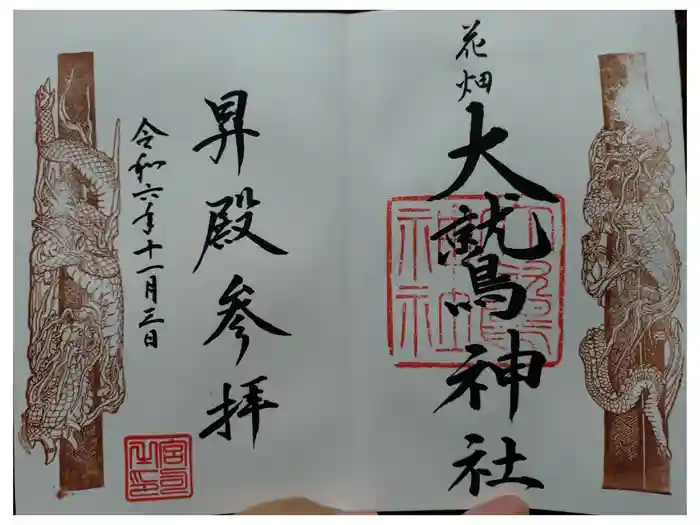 花畑
大鷲神社
昇殿参拝
令和六年十一月三日